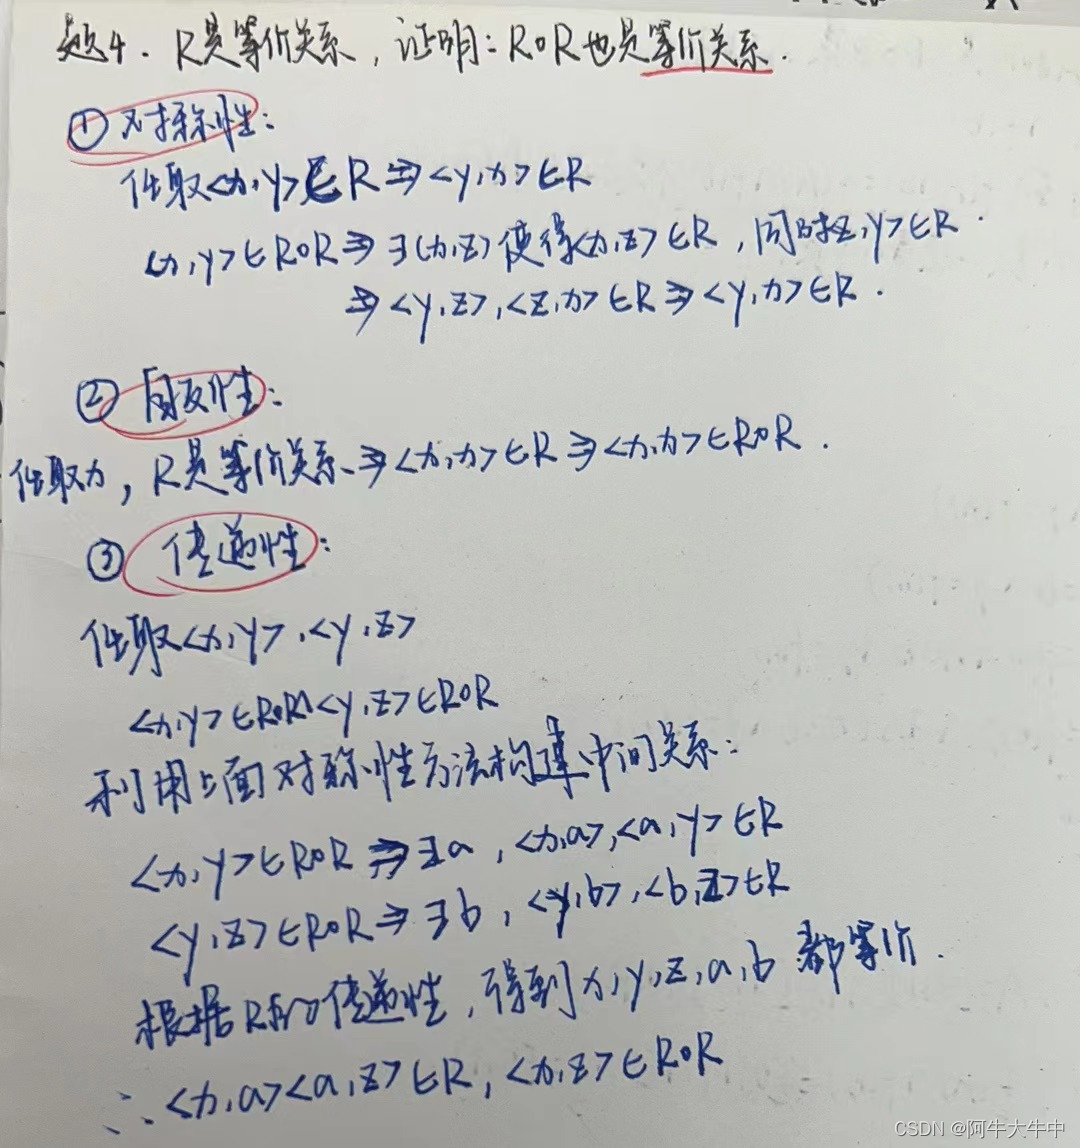 题4. R是等价关系，证明：R∘R也是等价关系.
① 对称性：
任取<x,y>∈R⇒<y,x>∈R
<x,y>∈R∘R⇒∃(x,z)使得<x,z>∈R，同时z,y>∈R.
⇒<y,z>,<z,x>∈R⇒<y,x>∈R.
② 自反性：
任取x，R是等价关系⇒<x,x>∈R⇒<x,x>∈R∘R.
③ 传递性：
任取<x,y>,<y,z>
<x,y>∈R∘R∧<y,z>∈R∘R
利用上面对称性方法构建中间关系：
<x,y>∈R∘R⇒∃a，<x,a>,<a,y>∈R
<y,z>∈R∘R⇒∃b，<y,b>,<b,z>∈R
根据R的传递性，得到x,y,z,a,b都等价.
∴<x,a><a,z>∈R，<x,z>∈R∘R
CSDN @阿牛大牛中